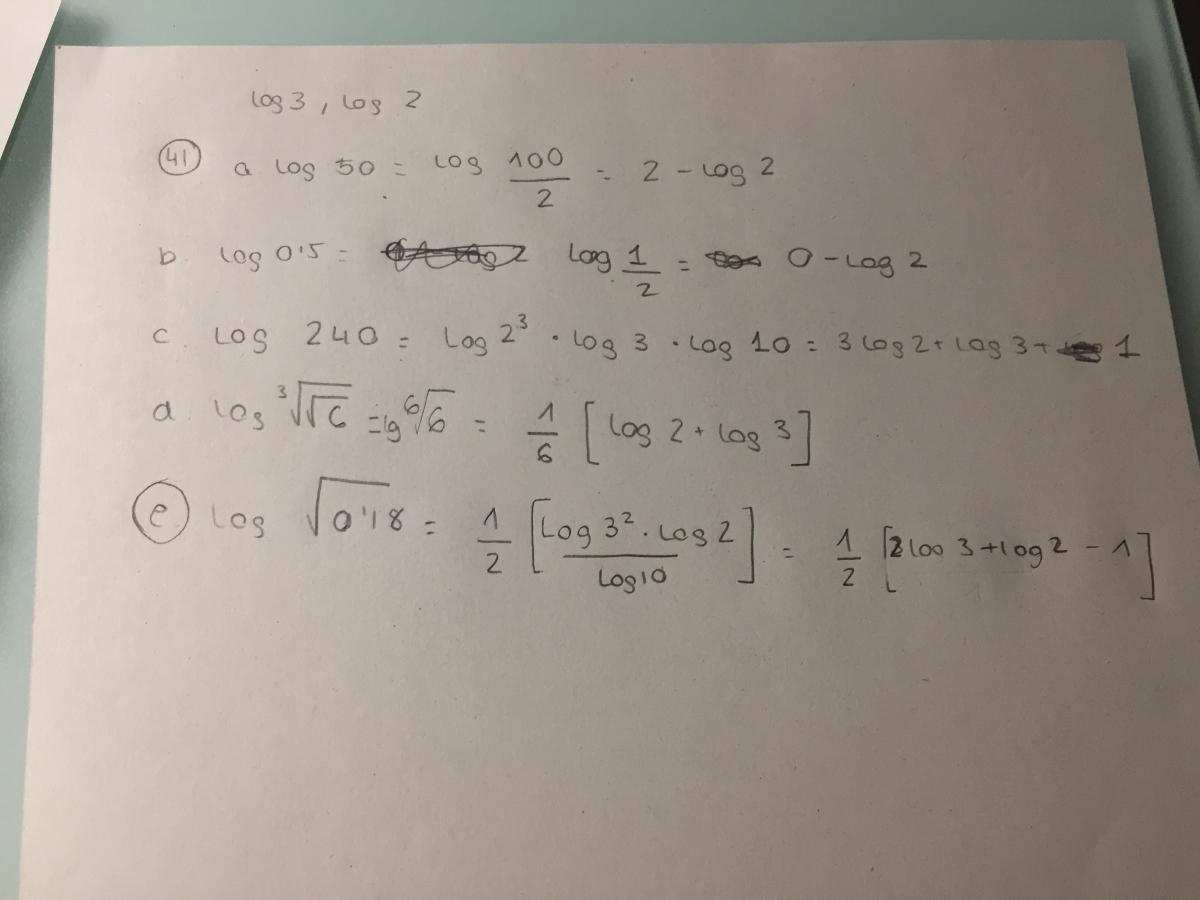 log 3, log 2
41 a log 50 = log 100/2 = 2 - log 2
b. log 0'5 = log 1/2 = 0 - log 2
c. log 240 = log 2³ · log 3 · log 10 = 3 log 2 + log 3 + 1
d log ³√√6 = lg ⁶√6 = 1/6 [log 2 + log 3]
e. log √0'18 = 1/2 [log 3² · log 2 / log 10] = 1/2 [2 log 3 + log 2 - 1]